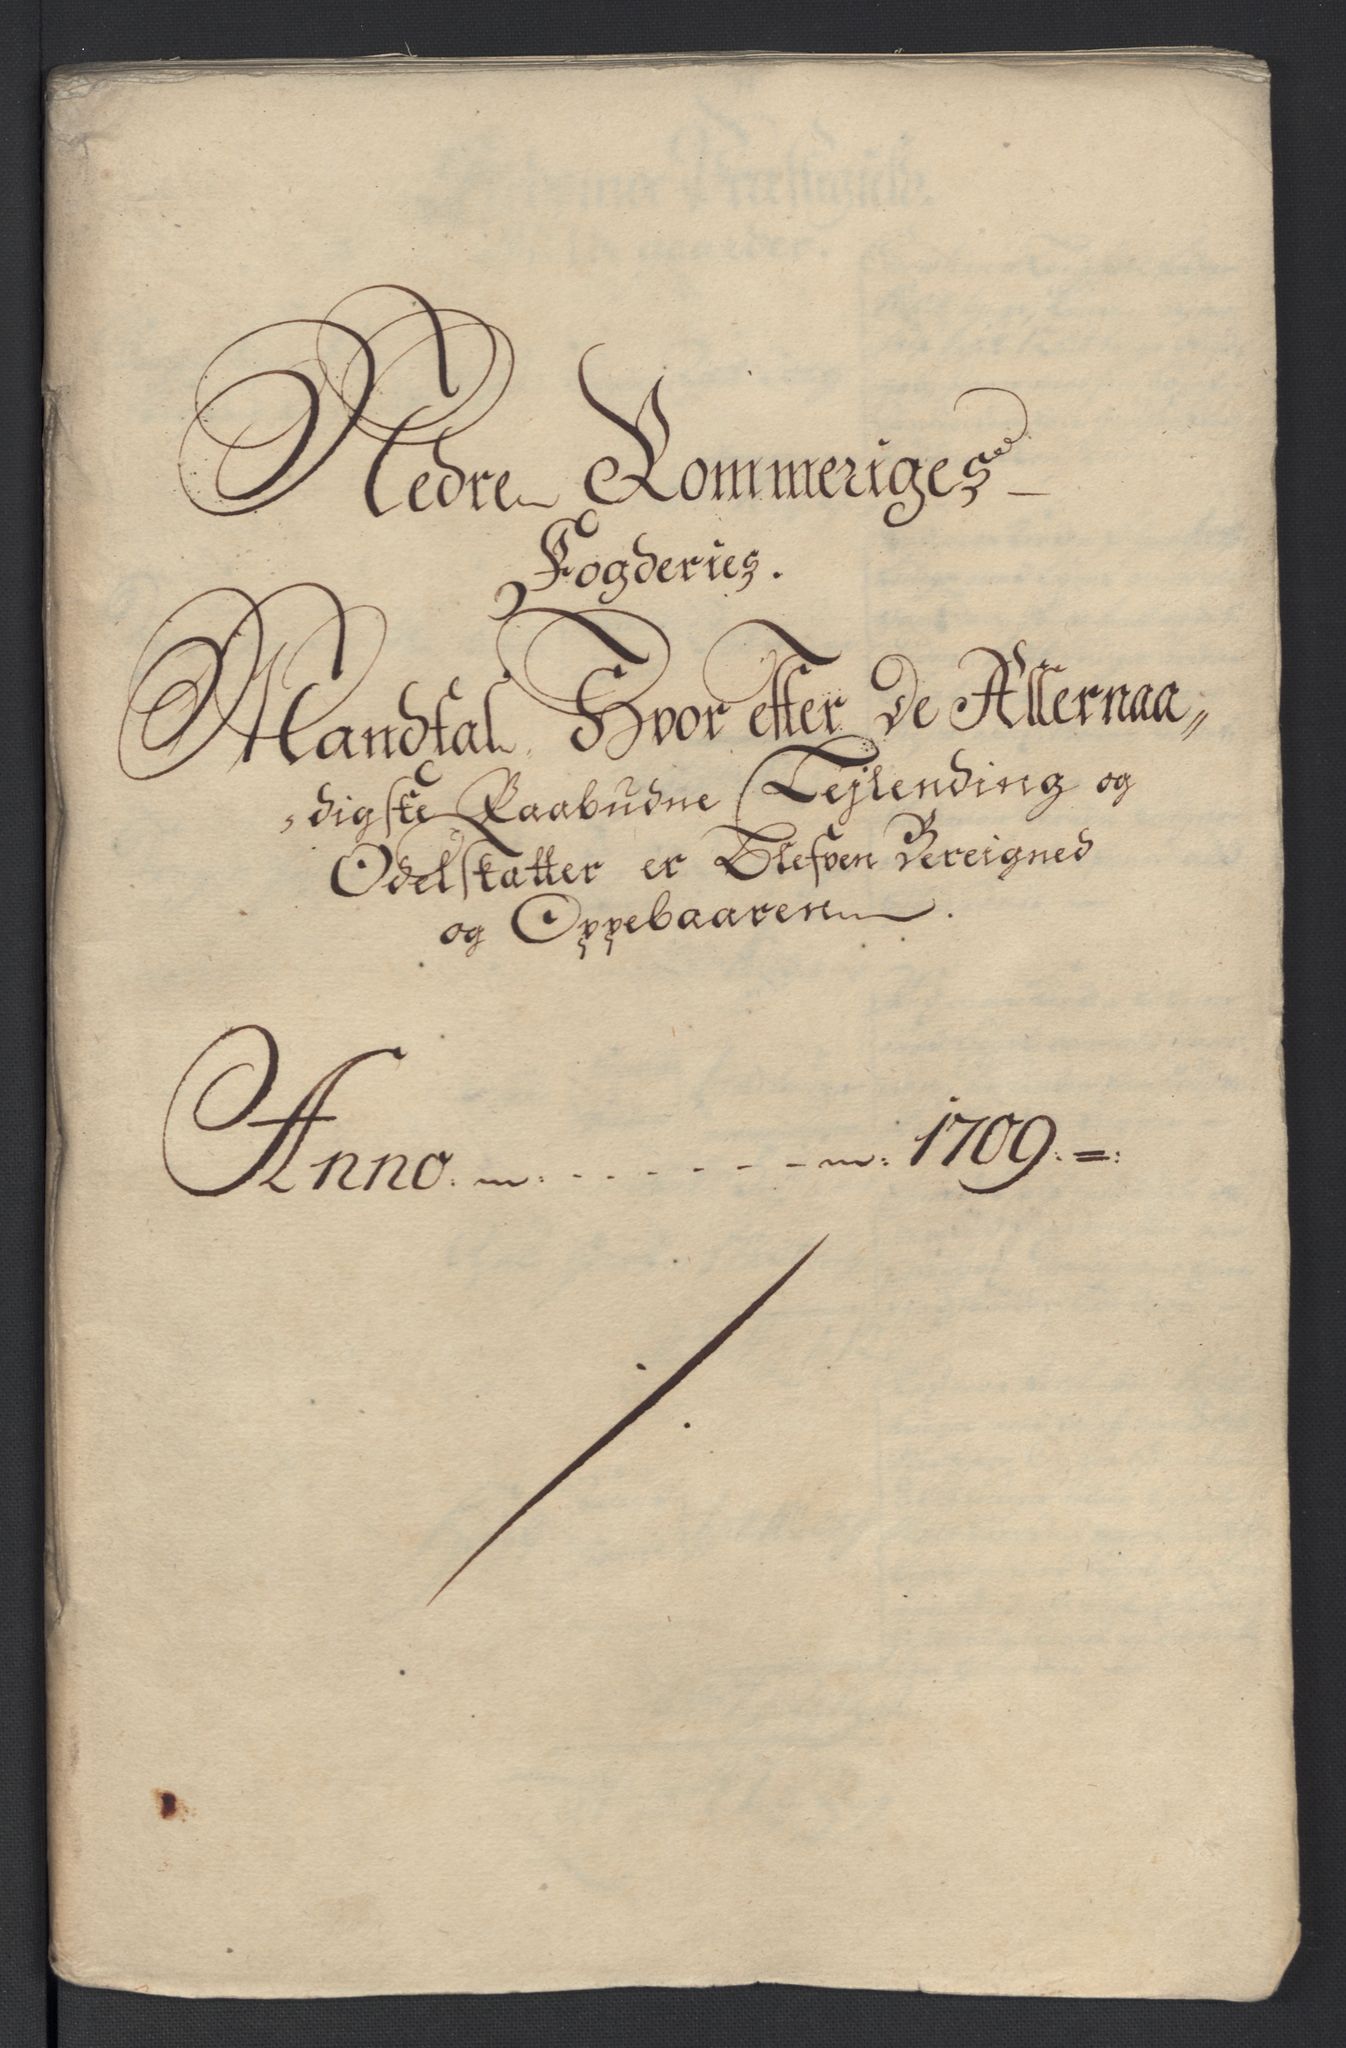 Nedre Rommeriges
Fogderies.
Mandtal Hvor effter De Allernaa„
„digste Paabudne Lejlending og
Odelskatter er blefven Bereigned
og Oppebaaren.
Anno. - - - - - - 1709. =: